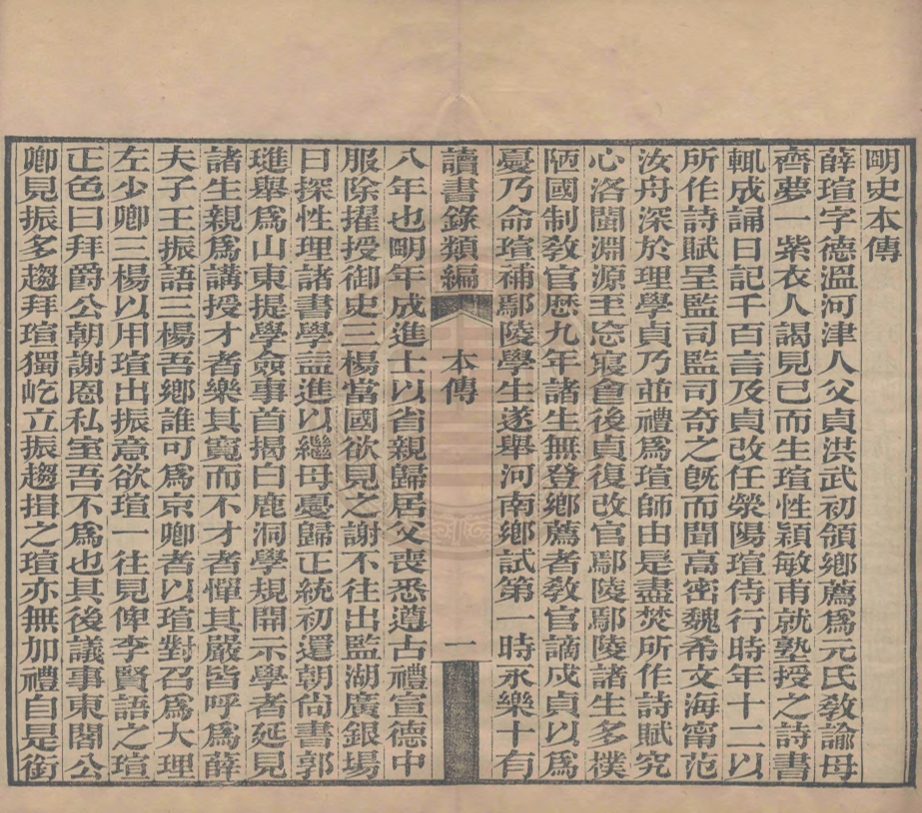 明史本傳
薛瑄字德溫河津人父貞洪武初領鄉薦爲元氏敎諭母
齊夢一紫衣人謁見已而生瑄性穎敏甫就塾授之詩書
輒成誦日記千百言及貞改任滎陽瑄侍行時年十二以
所作詩賦呈監司監司奇之旣而聞高密魏希文海甯范
汝舟深於理學貞乃並禮爲瑄師由是盡焚所作詩賦究
心洛閩淵源至忘寢會後貞復改官鄢陵鄢陵諸生多樸
陋國制敎官歷九年諸生無登鄉薦者敎官謫戍貞以爲
憂乃命瑄補鄢陵學生遂舉河南鄉試第一時永樂十有
讀書錄類編
本傳
一
八年也明年成進士以省親歸居父喪悉遵古禮宣德中
服除擢授御史三楊當國欲見之謝不往出監湖廣銀場
日探性理諸書學益進以繼母憂歸正統初還朝尚書郭
璡舉爲山東提學僉事首揭白鹿洞學規開示學者延見
諸生親爲講授才者樂其寬而不才者憚其嚴皆呼爲薛
夫子王振語三楊吾鄉誰可爲京卿者以瑄對召爲大理
左少卿三楊以用瑄出振意欲瑄一往見俾李賢語之瑄
正色曰拜爵公朝謝恩私室吾不爲也其後議事東閣公
卿見振多趨拜瑄獨屹立振趨揖之瑄亦無加禮自是銜